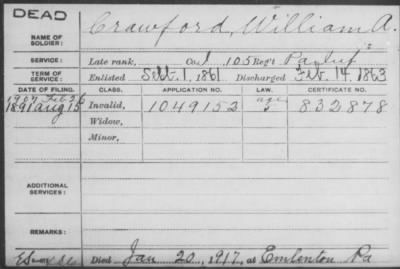 DEAD
NAME OF SOLDIER: Crawford, William A.
SERVICE: Late rank, Co. I, 105 Reg't Pa. Inf
TERM OF SERVICE: Enlisted Sept. 1, 1861 Discharged Feb. 14, 1863
DATE OF FILING. CLASS. APPLICATION NO. LAW. CERTIFICATE NO.
1907 Feb
1891 Aug 15 Invalid, 1049152 age 832878
Widow,
Minor,
ADDITIONAL SERVICES:
REMARKS:
Died Jan 20, 1917, at Emlenton Pa